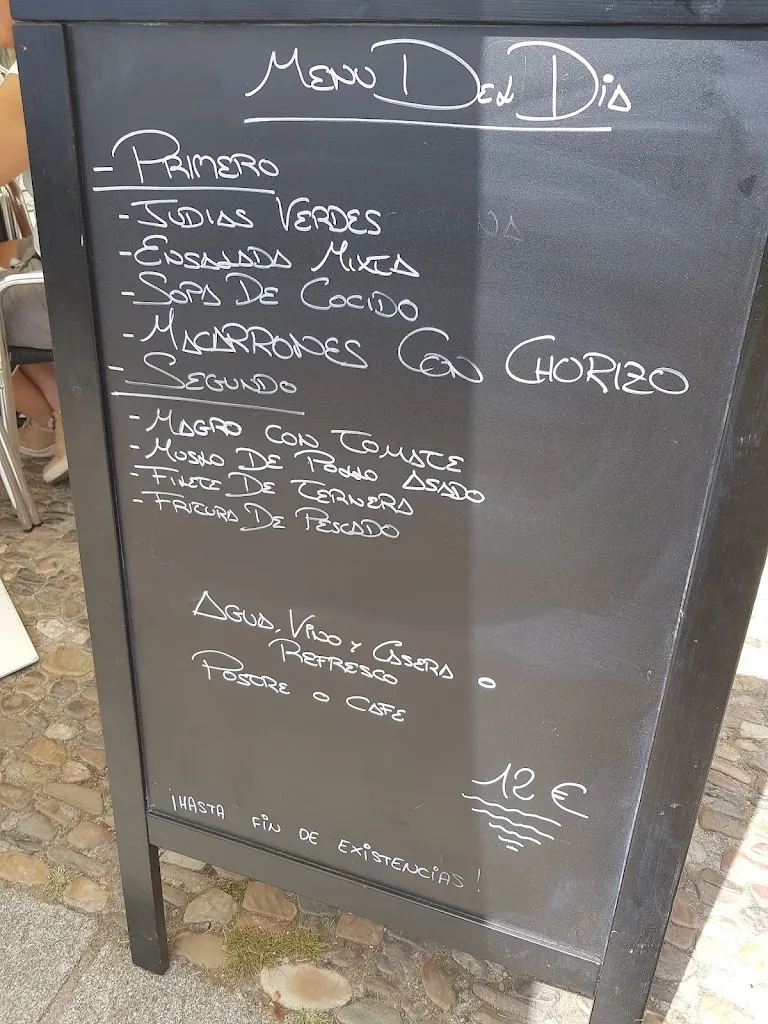 MENU DEL DIA
- PRIMERO
- JUDIAS VERDES
- ENSALADA MIXTA
- SOPA DE COCIDO
- MACARRONES CON CHORIZO
- SEGUNDO
- MAGRO CON TOMATE
- MUSLO DE POLLO ASADO
- FILETE DE TERNERA
- FRITURA DE PESCADO
AGUA, VINO Y CASERA O
REFRESCO
POSTRE O CAFE
12 €
¡HASTA FIN DE EXISTENCIAS!